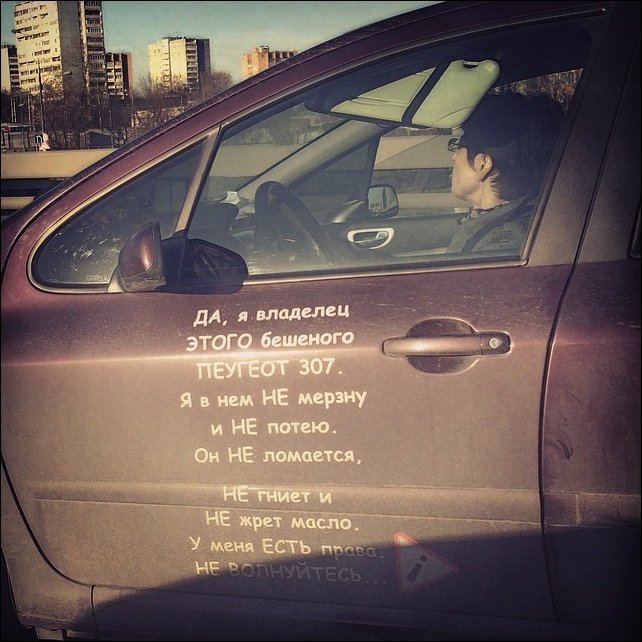 ДА, я владелец
ЭТОГО бешеного
ПЕУГЕОТ 307.
Я в нем НЕ мерзну
и НЕ потею.
Он НЕ ломается,
НЕ гниет и
НЕ жрет масло.
У меня ЕСТЬ права.
НЕ ВОЛНУЙТЕСЬ...